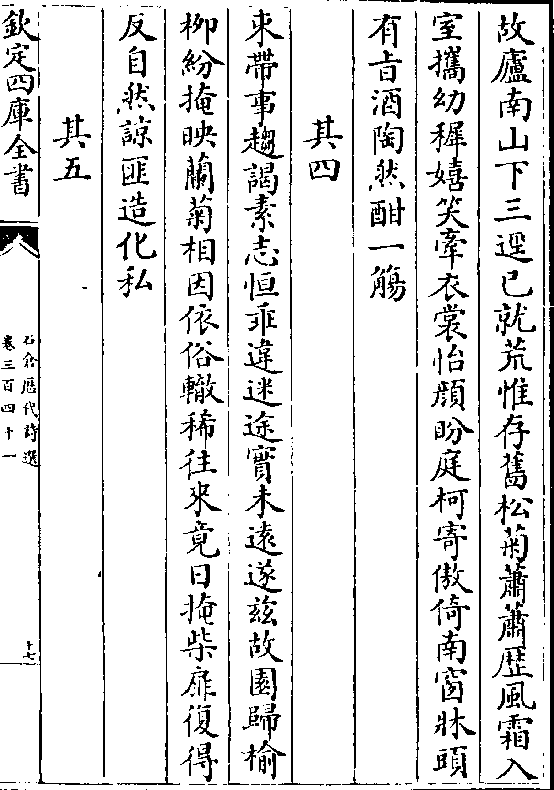 故廬南山下三逕已就荒惟存舊松菊蕭蕭歴風霜入
室攜幼穉嬉笑牽衣裳怡顔盼庭柯寄傲倚南窗牀頭
有旨酒陶然酣一觴
其四
束帶事趨謁素志恒乖違迷途實未遠遂兹故園歸榆
栁紛掩映蘭菊相因依俗轍稀往來竟日掩柴扉復得
反自然諒匪造化私
其五
欽定四庫全書
石倉歴代詩選
卷三百四十一
十七